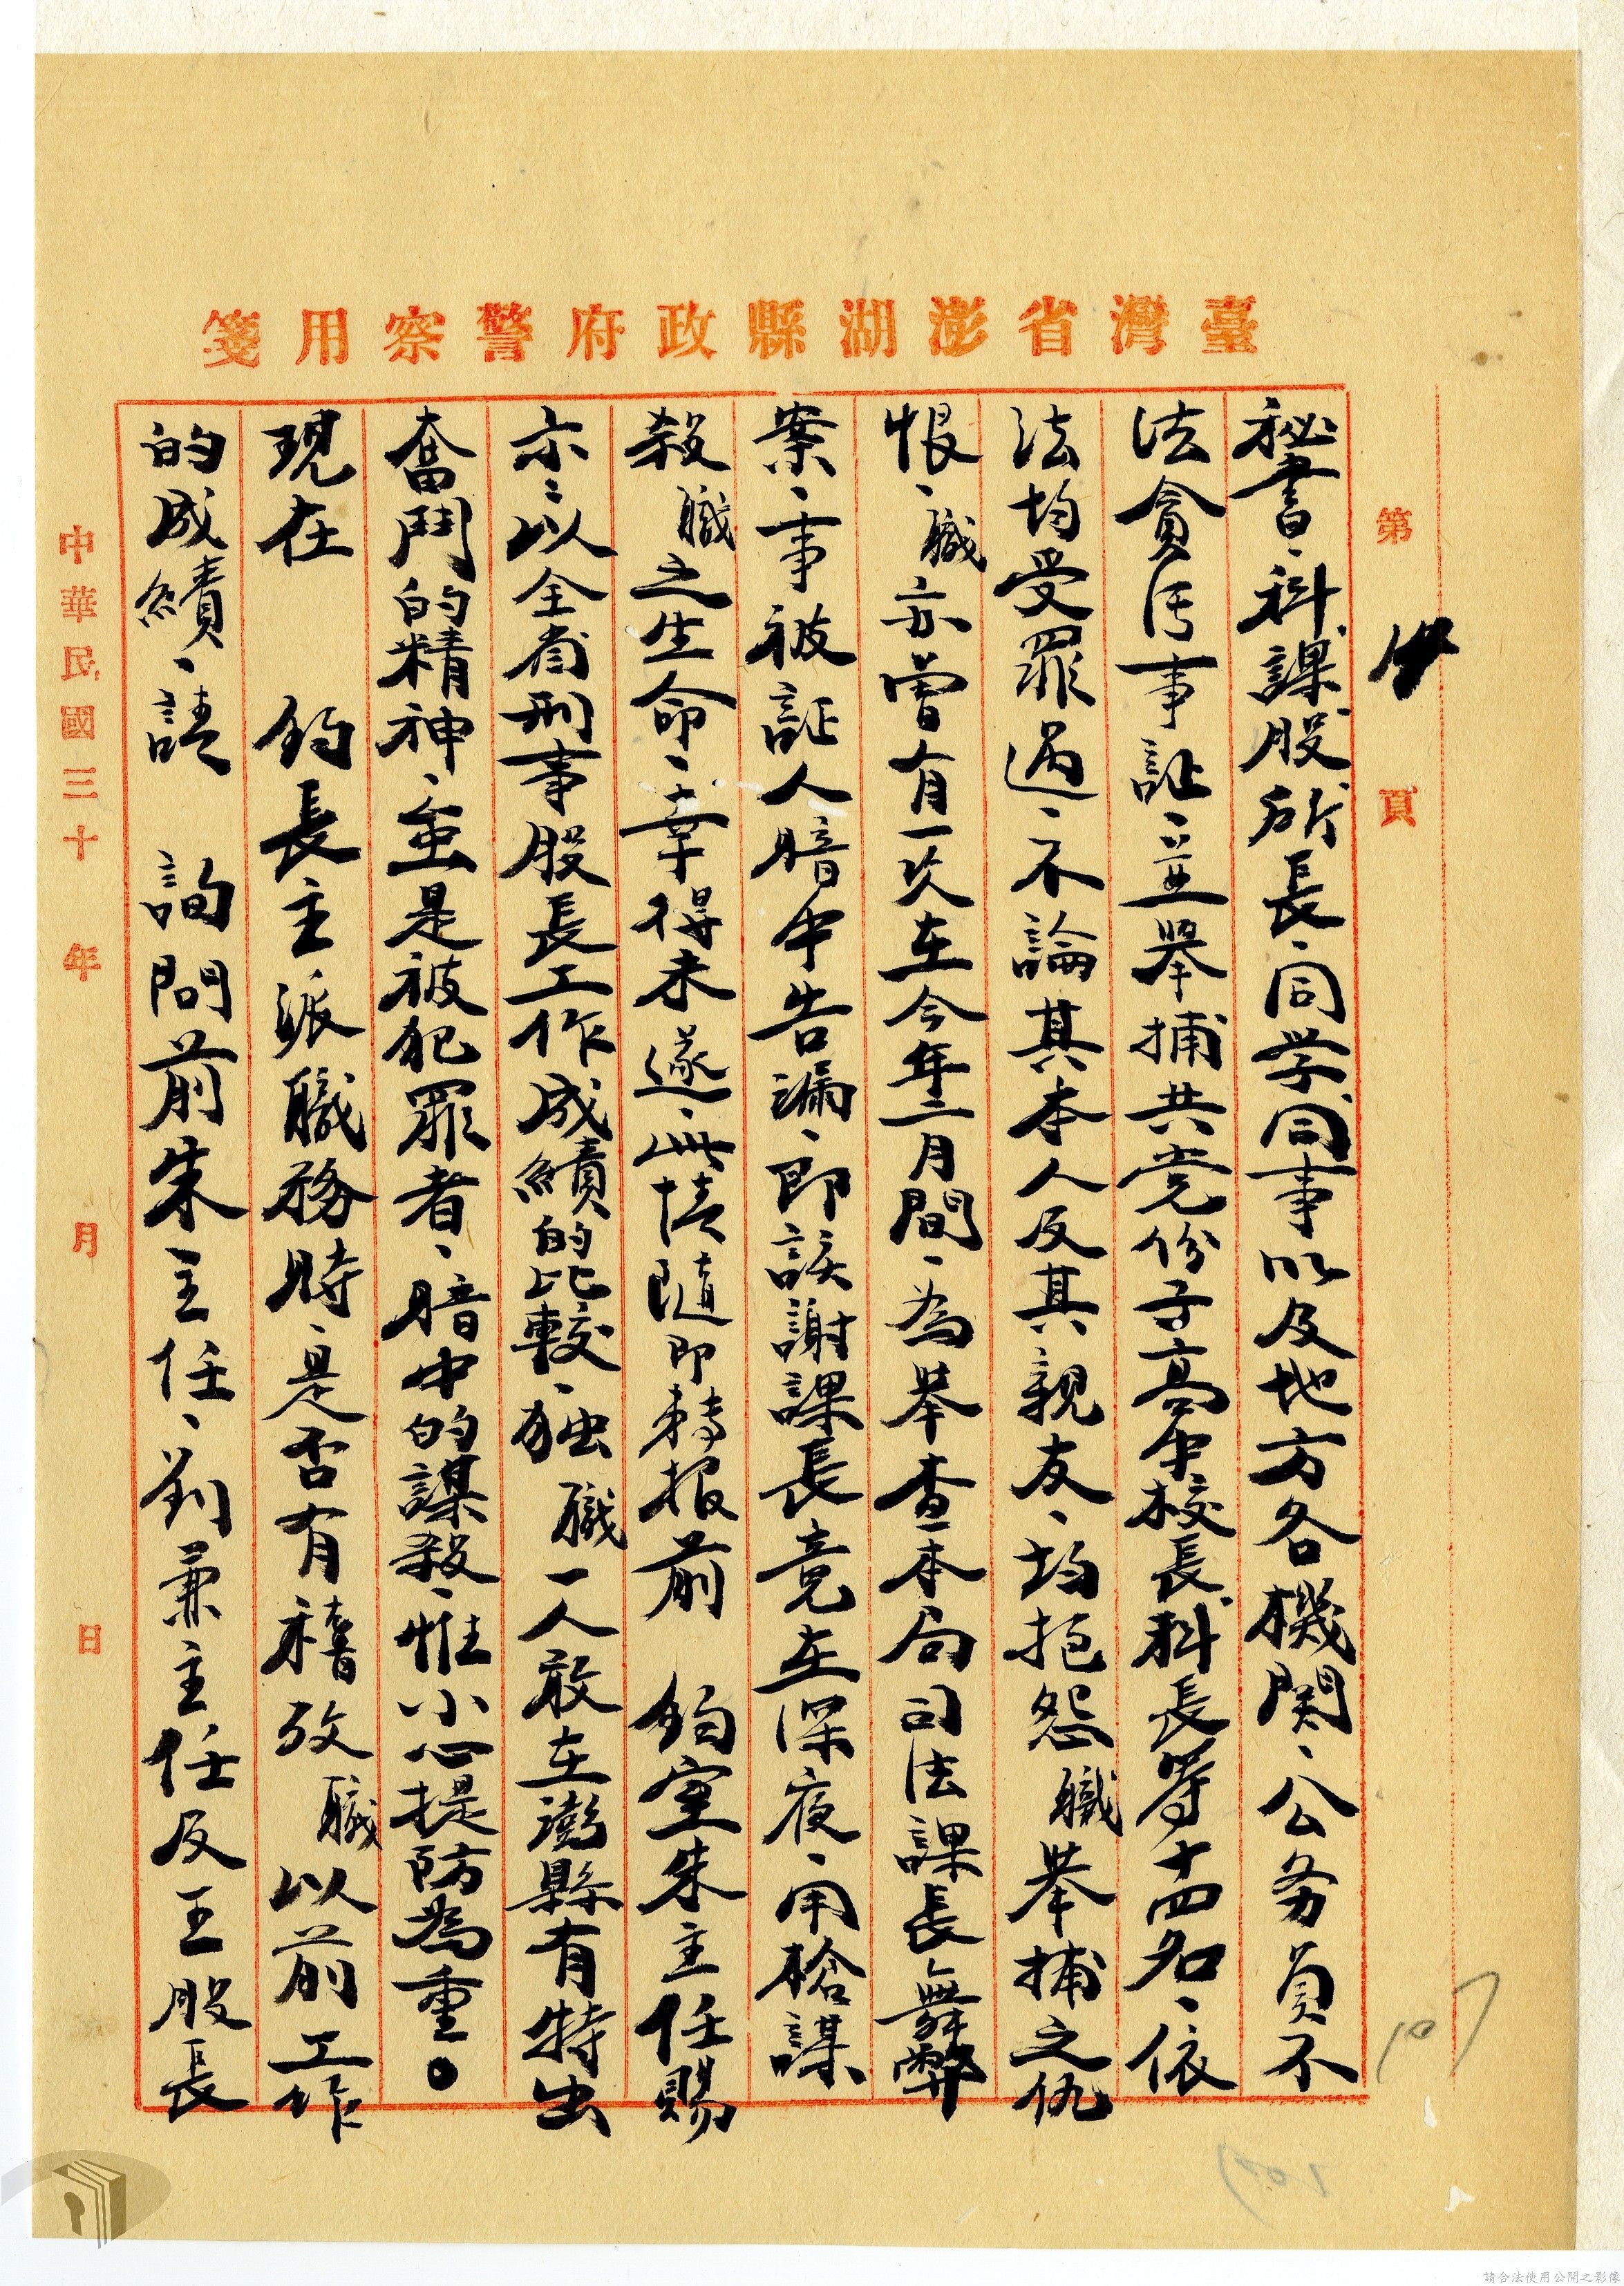 臺灣省澎湖縣政府警察用箋
第 頁
秘書、科課股所長、同学同事以及地方各機関、公务員不
法貪污事証、並舉捕共党份子高中校長科長等十四名、依
法均受罪过、不論其本人反其親友、均抱怨職举捕之仇
恨、職亦曾有一次在今年二月間、為举查本局司法課長舞弊
案、事被証人暗中告漏、即該謝課長竟在深夜、用槍謀
殺職之生命、幸得未遂、此情隨即轉报前 鈞室朱主任賜
示、以全省刑事股長工作成績的比較、独職一人敢在澎縣有特出
奮鬥的精神、虽是被犯罪者、暗中的謀殺、惟小心提防為重。
現在 鈞長主派職務時、是否有稽攷職以前工作
的成績、請 詢問前朱主任、刘兼主任反王股長
中華民國三十 年 月 日
107
請合法使用公開之影像